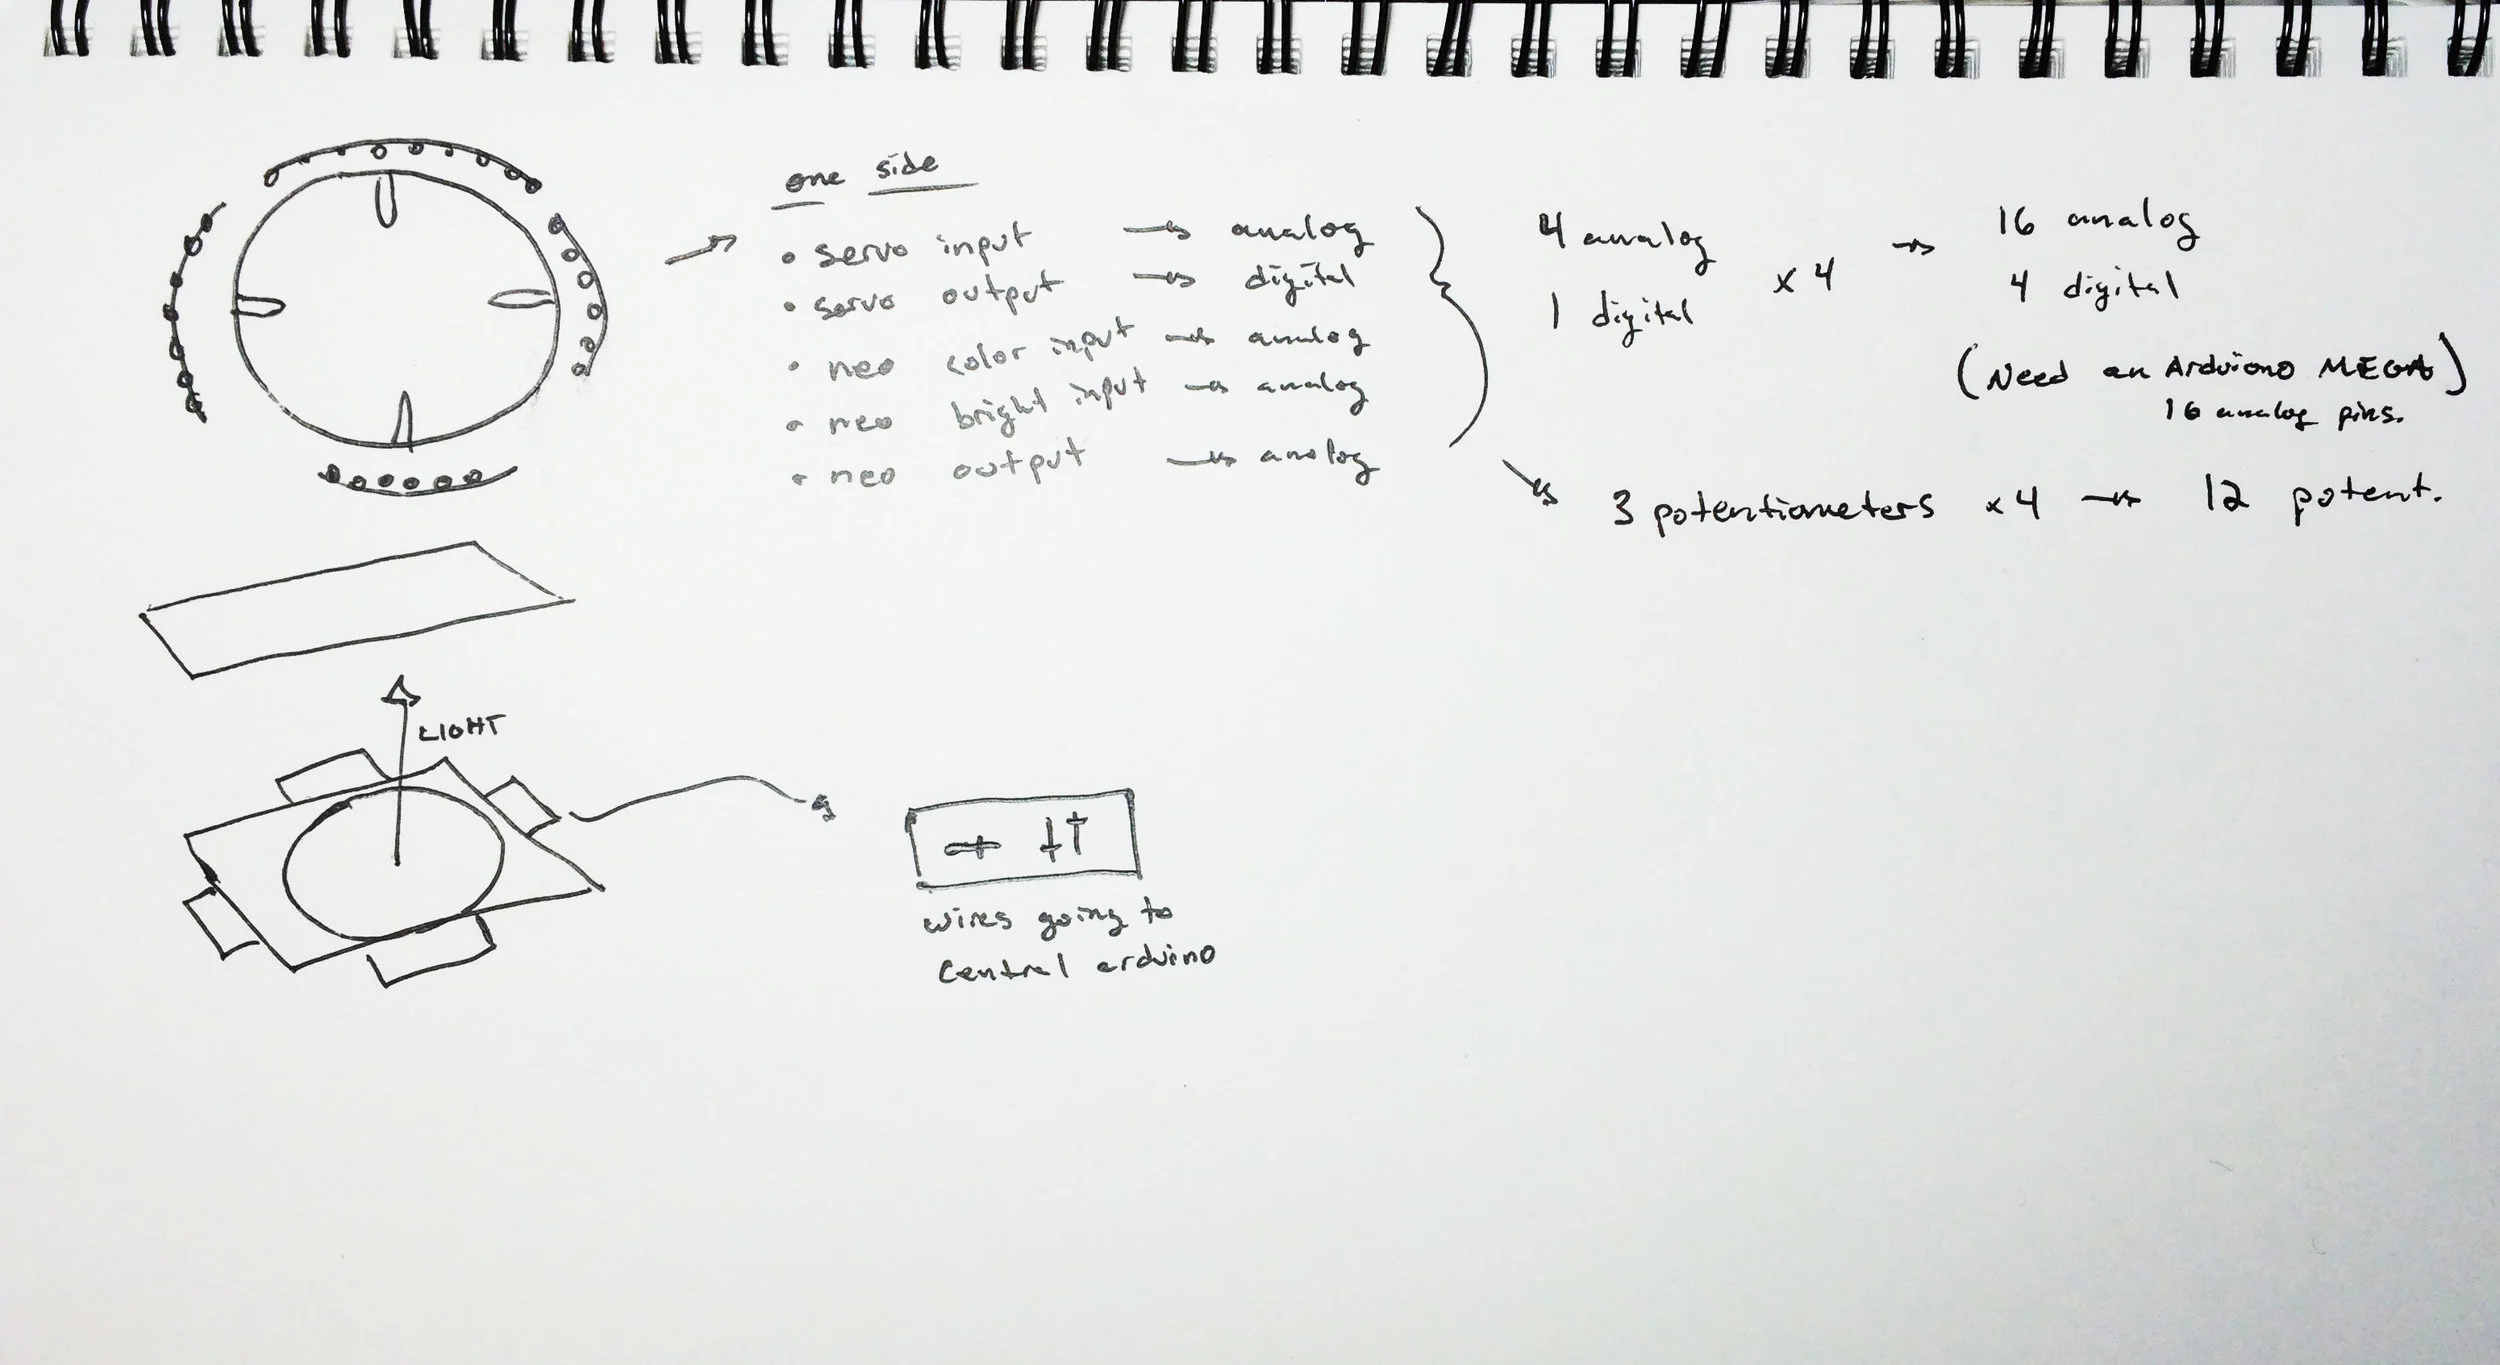 one side
• servo input → analog
• servo output → digital
• neo color input → analog
• neo bright input → analog
• neo output → analog
4 analog
1 digital
x 4 →
16 analog
4 digital
(Need an Arduiono MEGA)
16 analog pins.
3 potentiometers x 4 → 12 potent.
LIGHT
wires going to
central arduino